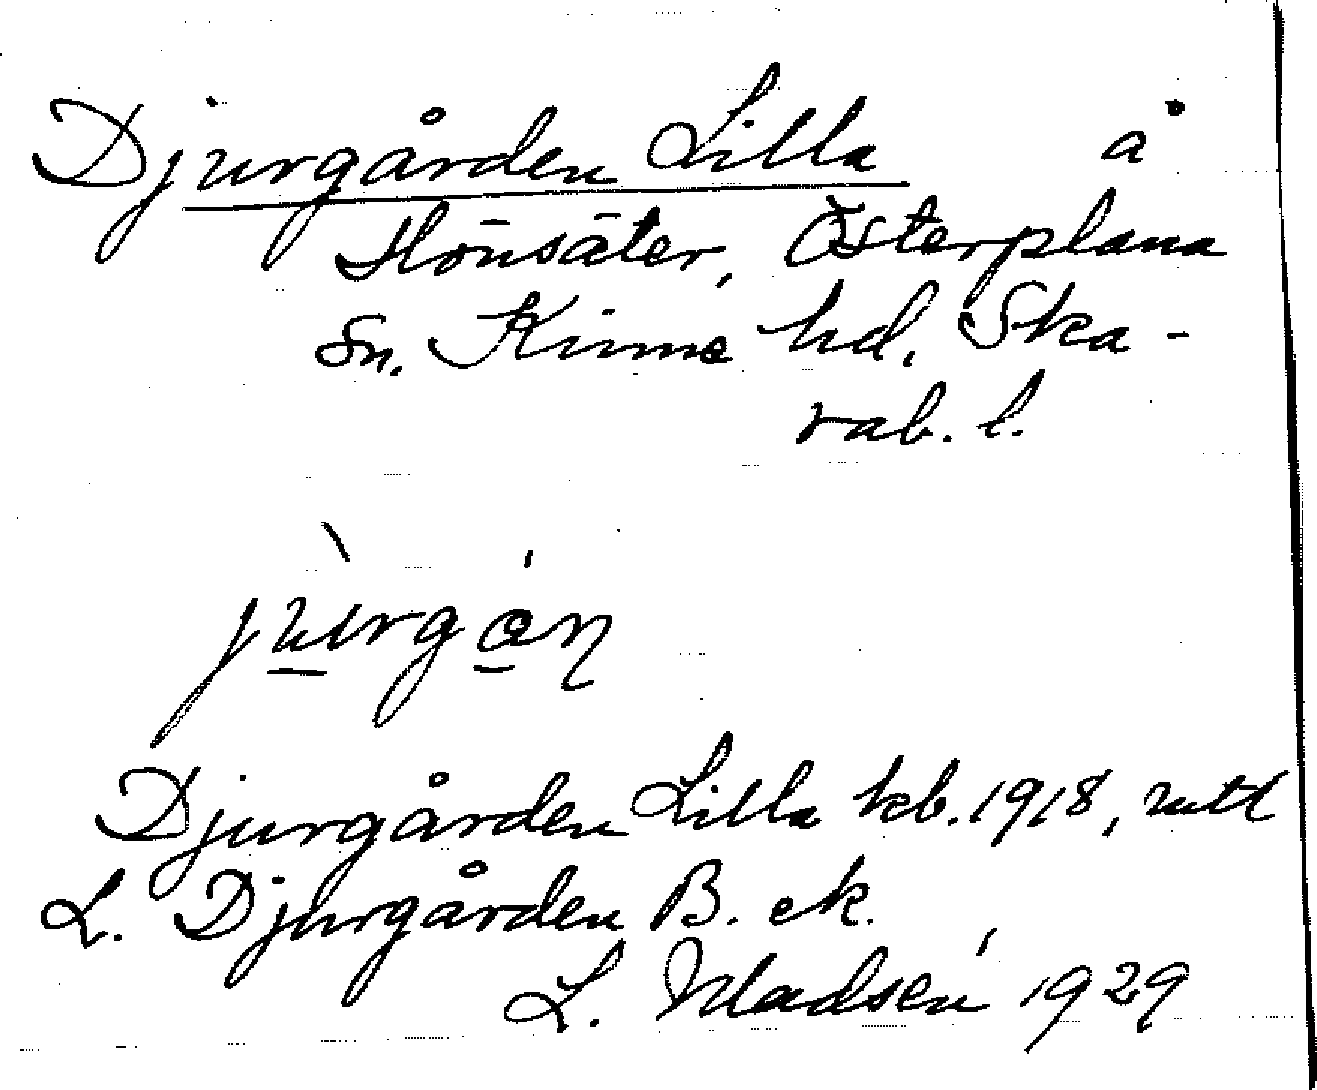 Djurgården Lilla å
Hönsäter, Österplana
sn. Kinne hd, Ska-
rab. l.
jùrgán
Djurgården Lilla kb. 1918,
L. Djurgården B. ek.
L. Madsén 1929